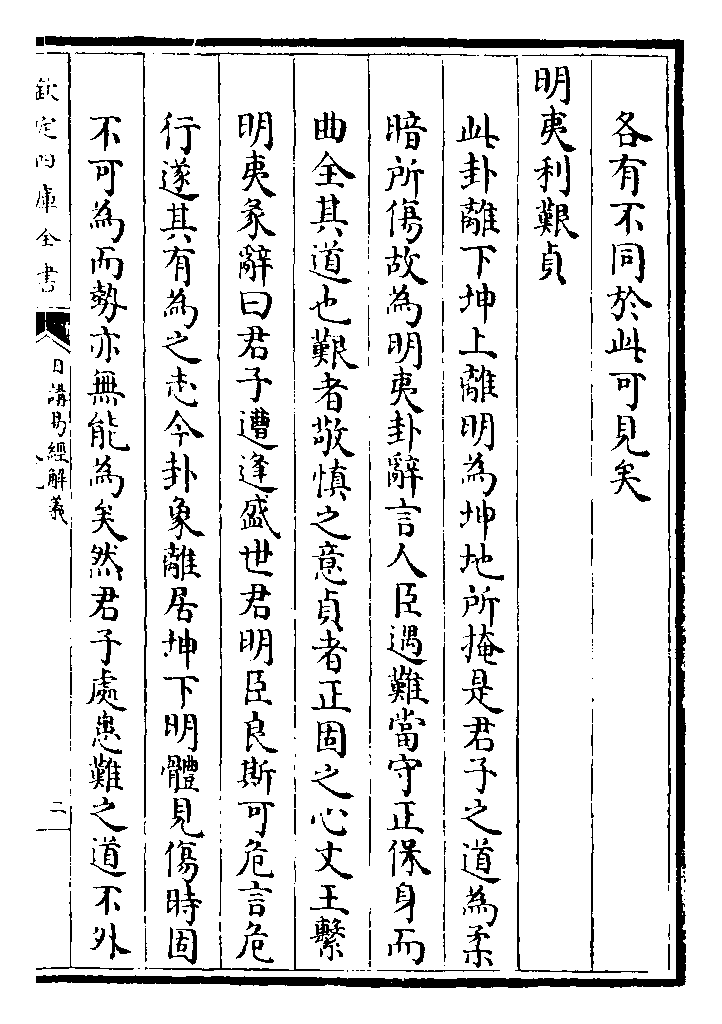 各有不同於此可見矣
明夷利艱貞
此卦離下坤上離明為坤地所掩是君子之道為柔
暗所傷故為明夷卦辭言人臣遇難當守正保身而
曲全其道也艱者敬慎之意貞者正固之心文王繫
明夷彖辭曰君子遭逢盛世君明臣良斯可危言危
行遂其有為之志今卦象離居坤下明體見傷時固
不可為而勢亦無能為矣然君子處患難之道不外
欽定四庫全書
日講易經解義
二